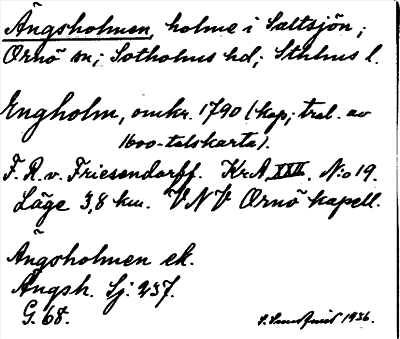 Ängsholmen, holme i Saltsjön;
Ornö sn; Sotholms hd; Sthlms l.
Engholm, omkr. 1790 (kop; trol. av
1600-talskarta).
F. R. v. Friesendorff. KrA XXII. N:o 19.
Läge 3,8 km. VNV Ornö kapell.
Ängsholmen ek.
Ängsh. Sj: 237.
G. 68.
1936.